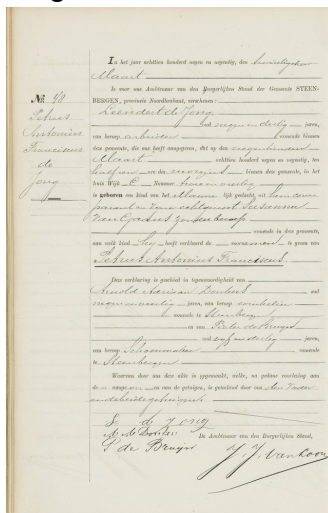 Nº. 48
Petrus
Antonius
Franciscus
de
Jong
In het jaar achttien honderd negen en negentig, den twintigsten
Maart
is voor ons Ambtenaar van den Burgerlijken Stand der Gemeente STEEN-
BERGEN, provincie Noordbrabant, verschenen:
Leendert de Jong
oud negenendertig jaren,
van beroep arbeider wonende binnen
deze gemeente, die ons heeft aangegeven, dat op den negentienden
Maart achttien honderd negen en negentig, ten
half een ure des morgens binnen deze gemeente, in het
huis Wijk C Nommer
is geboren een kind van het Mannelijk geslacht, uit hem
en zijne echtgenoot Susanna
zonder beroep
wonende in deze gemeente,
aan welk kind hij heeft verklaard de voornamen te geven van
Petrus Antonius Franciscus.
Deze verklaring is geschied in tegenwoordigheid van
Arnold Adriaan oud
jaren, van beroep
wonende te Steenbergen
en van Pieter de Bruijn
oud vijfendertig jaren,
van beroep Schoenmaker wonende
te Steenbergen
Waarvan door ons deze akte is opgemaakt, welke, na gedane voorlezing aan
de aangever en aan de getuigen, is geteekend door ons, den Vader
en de beide getuigen.
L de Jong
P de Bruijn
De Ambtenaar van den Burgerlijken Stand,
J. J. van Loon